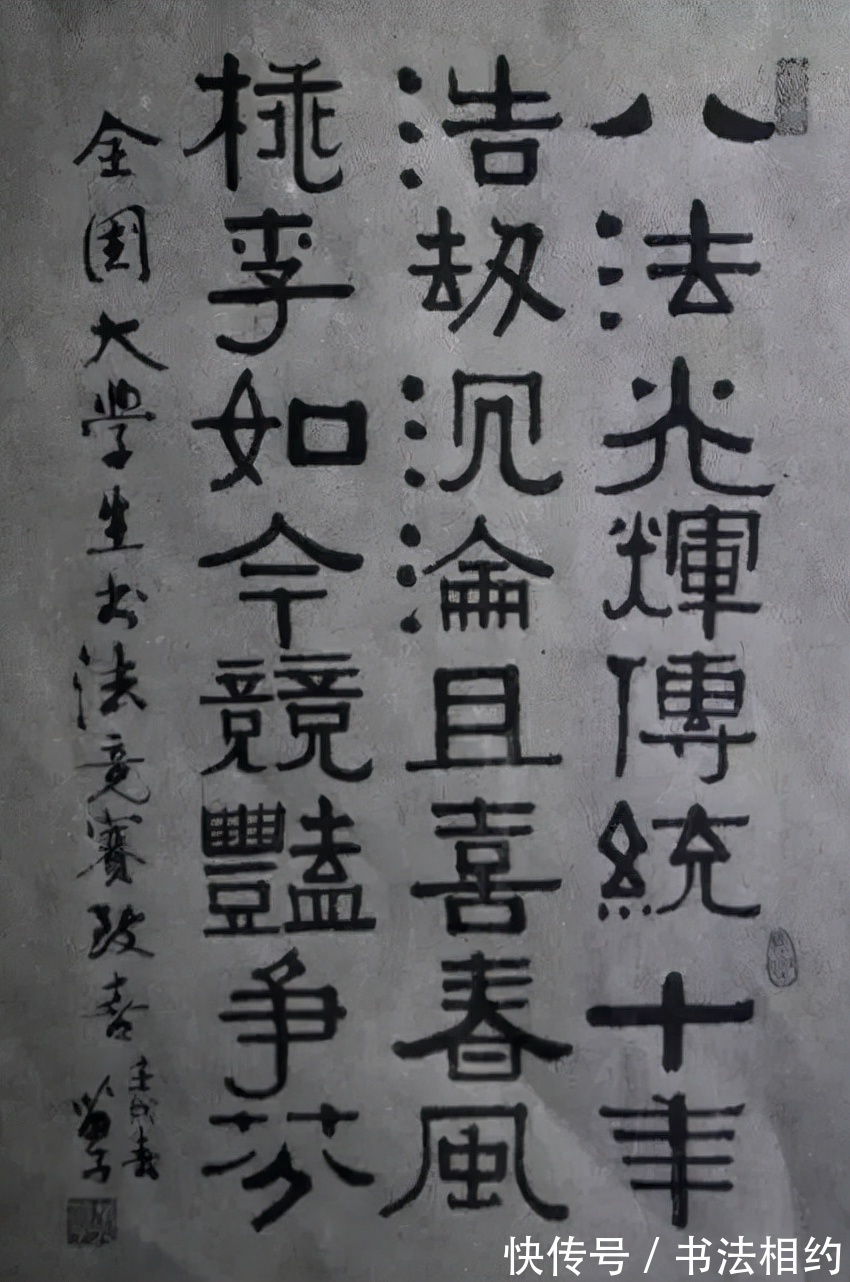 八法光輝傳統十年
浩劫沉淪且喜春風
桃李如今競豔争芬
全國大学生书法竞賽致喜
壬戌春
快传号 / 书法相约